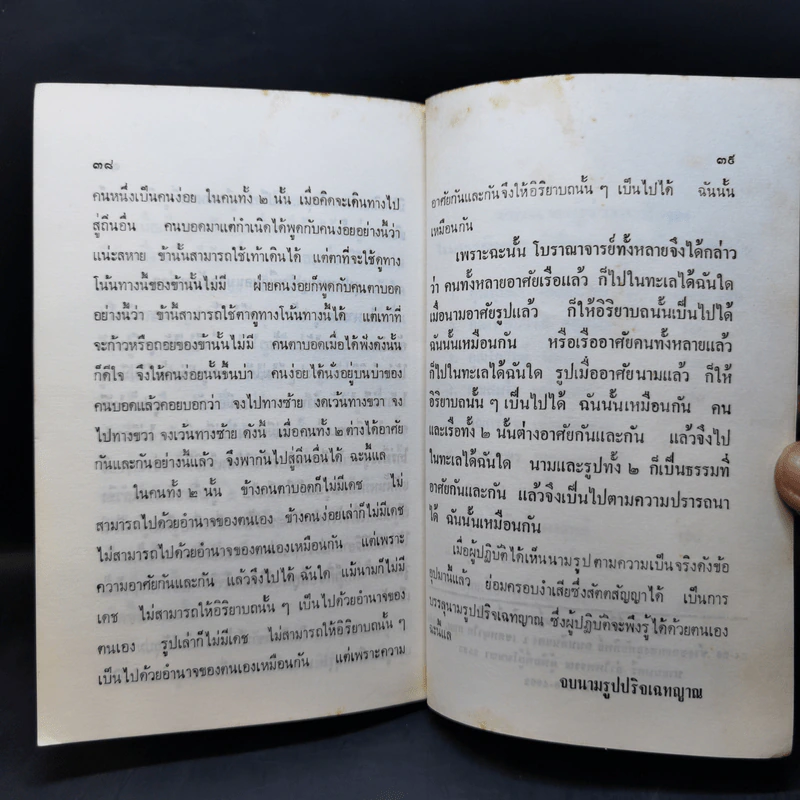 ๓๘
คนหนึ่งเป็นคนง่อย ในคนทั้ง ๒ นั้น เมื่อคิดจะเดินทางไป
สู่ถิ่นอื่น คนบอดมาแต่กำเนิดได้พูดกับคนง่อยอย่างนี้ว่า
แน่ะสหาย ข้านั้นสามารถใช้เท้าเดินได้ แต่ตาที่จะใช้ดูทาง
โน้นทางนี้ของข้านั้นไม่มี ฝ่ายคนง่อยก็พูดกับคนตาบอด
อย่างนี้ว่า ข้านี้สามารถใช้ตาดูทางโน้นทางนี้ได้ แต่เท้าที่
จะก้าวหรือถอยของข้านั้นไม่มี คนตาบอดเมื่อได้ฟังดังนั้น
ก็ดีใจ จึงให้คนง่อยนั้นขึ้นบ่า คนง่อยได้นั่งอยู่บนบ่าของ
คนบอดแล้วคอยบอกว่า จงไปทางซ้าย งดเว้นทางขวา จง
ไปทางขวา จงเว้นทางซ้าย ดังนี้ เมื่อคนทั้ง ๒ ต่างได้อาศัย
กันและกันอย่างนี้แล้ว จึงพากันไปสู่ถิ่นอื่นได้ ฉะนี้แล
ในคนทั้ง ๒ นั้น ข้างคนตาบอดก็ไม่มีเดช ไม่
สามารถไปด้วยอำนาจของตนเอง ข้างคนง่อยเล่าก็ไม่มีเดช
ไม่สามารถไปด้วยอำนาจของตนเองเหมือนกัน แต่เพราะ
ความอาศัยกันและกัน แล้วจึงไปได้ ฉันใด แม้นามก็ไม่มี
เดช ไม่สามารถให้อิริยาบถนั้น ๆ เป็นไปด้วยอำนาจของ
ตนเอง รูปเล่าก็ไม่มีเดช ไม่สามารถให้อิริยาบถนั้น ๆ
เป็นไปด้วยอำนาจของตนเองเหมือนกัน แต่เพราะความ
๓๙
อาศัยกันและกันจึงให้อิริยาบถนั้น ๆ เป็นไปได้ ฉันนั้น
เหมือนกัน
เพราะฉะนั้น โบราณาจารย์ทั้งหลายจึงได้กล่าว
ว่า คนทั้งหลายอาศัยเรือแล้ว ก็ไปในทะเลได้ฉันใด
เมื่อนามอาศัยรูปแล้ว ก็ให้อิริยาบถนั้นเป็นไปได้
ฉันนั้นเหมือนกัน หรือเรืออาศัยคนทั้งหลายแล้ว
ก็ไปในทะเลได้ฉันใด รูปเมื่ออาศัยนามแล้ว ก็ให้
อิริยาบถนั้น ๆ เป็นไปได้ ฉันนั้นเหมือนกัน คน
และเรือทั้ง ๒ นั้นต่างอาศัยกันและกัน แล้วจึงไป
ในทะเลได้ฉันใด นามและรูปทั้ง ๒ ก็เป็นธรรมที่
อาศัยกันและกัน แล้วจึงเป็นไปตามความปรารถนา
ได้ ฉันนั้นเหมือนกัน
เมื่อผู้ปฏิบัติได้เห็นนามรูปตามความเป็นจริงดังข้อ
อุปมานี้แล้ว ย่อมครอบงำเสียซึ่งสัตตสัญญาได้ เป็นการ
บรรลุนามรูปปริจเฉทญาณ ซึ่งผู้ปฏิบัติจะพึงรู้ได้ด้วยตนเอง
ฉะนี้แล
จบนามรูปปริจเฉทญาณ